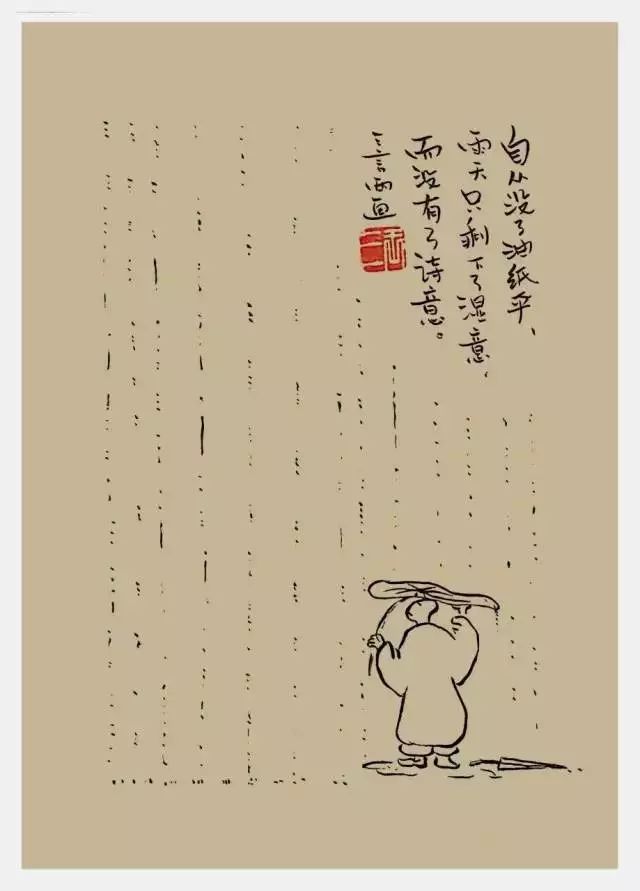 自从没了油纸伞、
雨天只剩下了湿意、
而没有了诗意。
三言两画